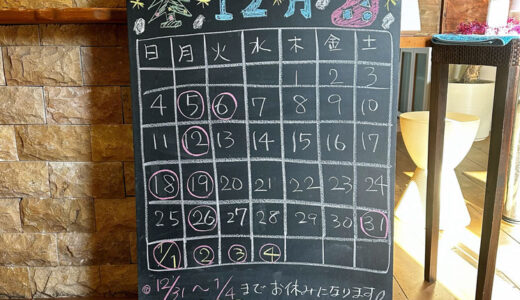 12月
日 月 火 水 木 金 土
1 2 3
4 5 6 7 8 9 10
11 12 13 14 15 16 17
18 19 20 21 22 23 24
25 26 27 28 29 30 31
1/1 2 3 4
12/31 〜 1/4 までお休みになります。